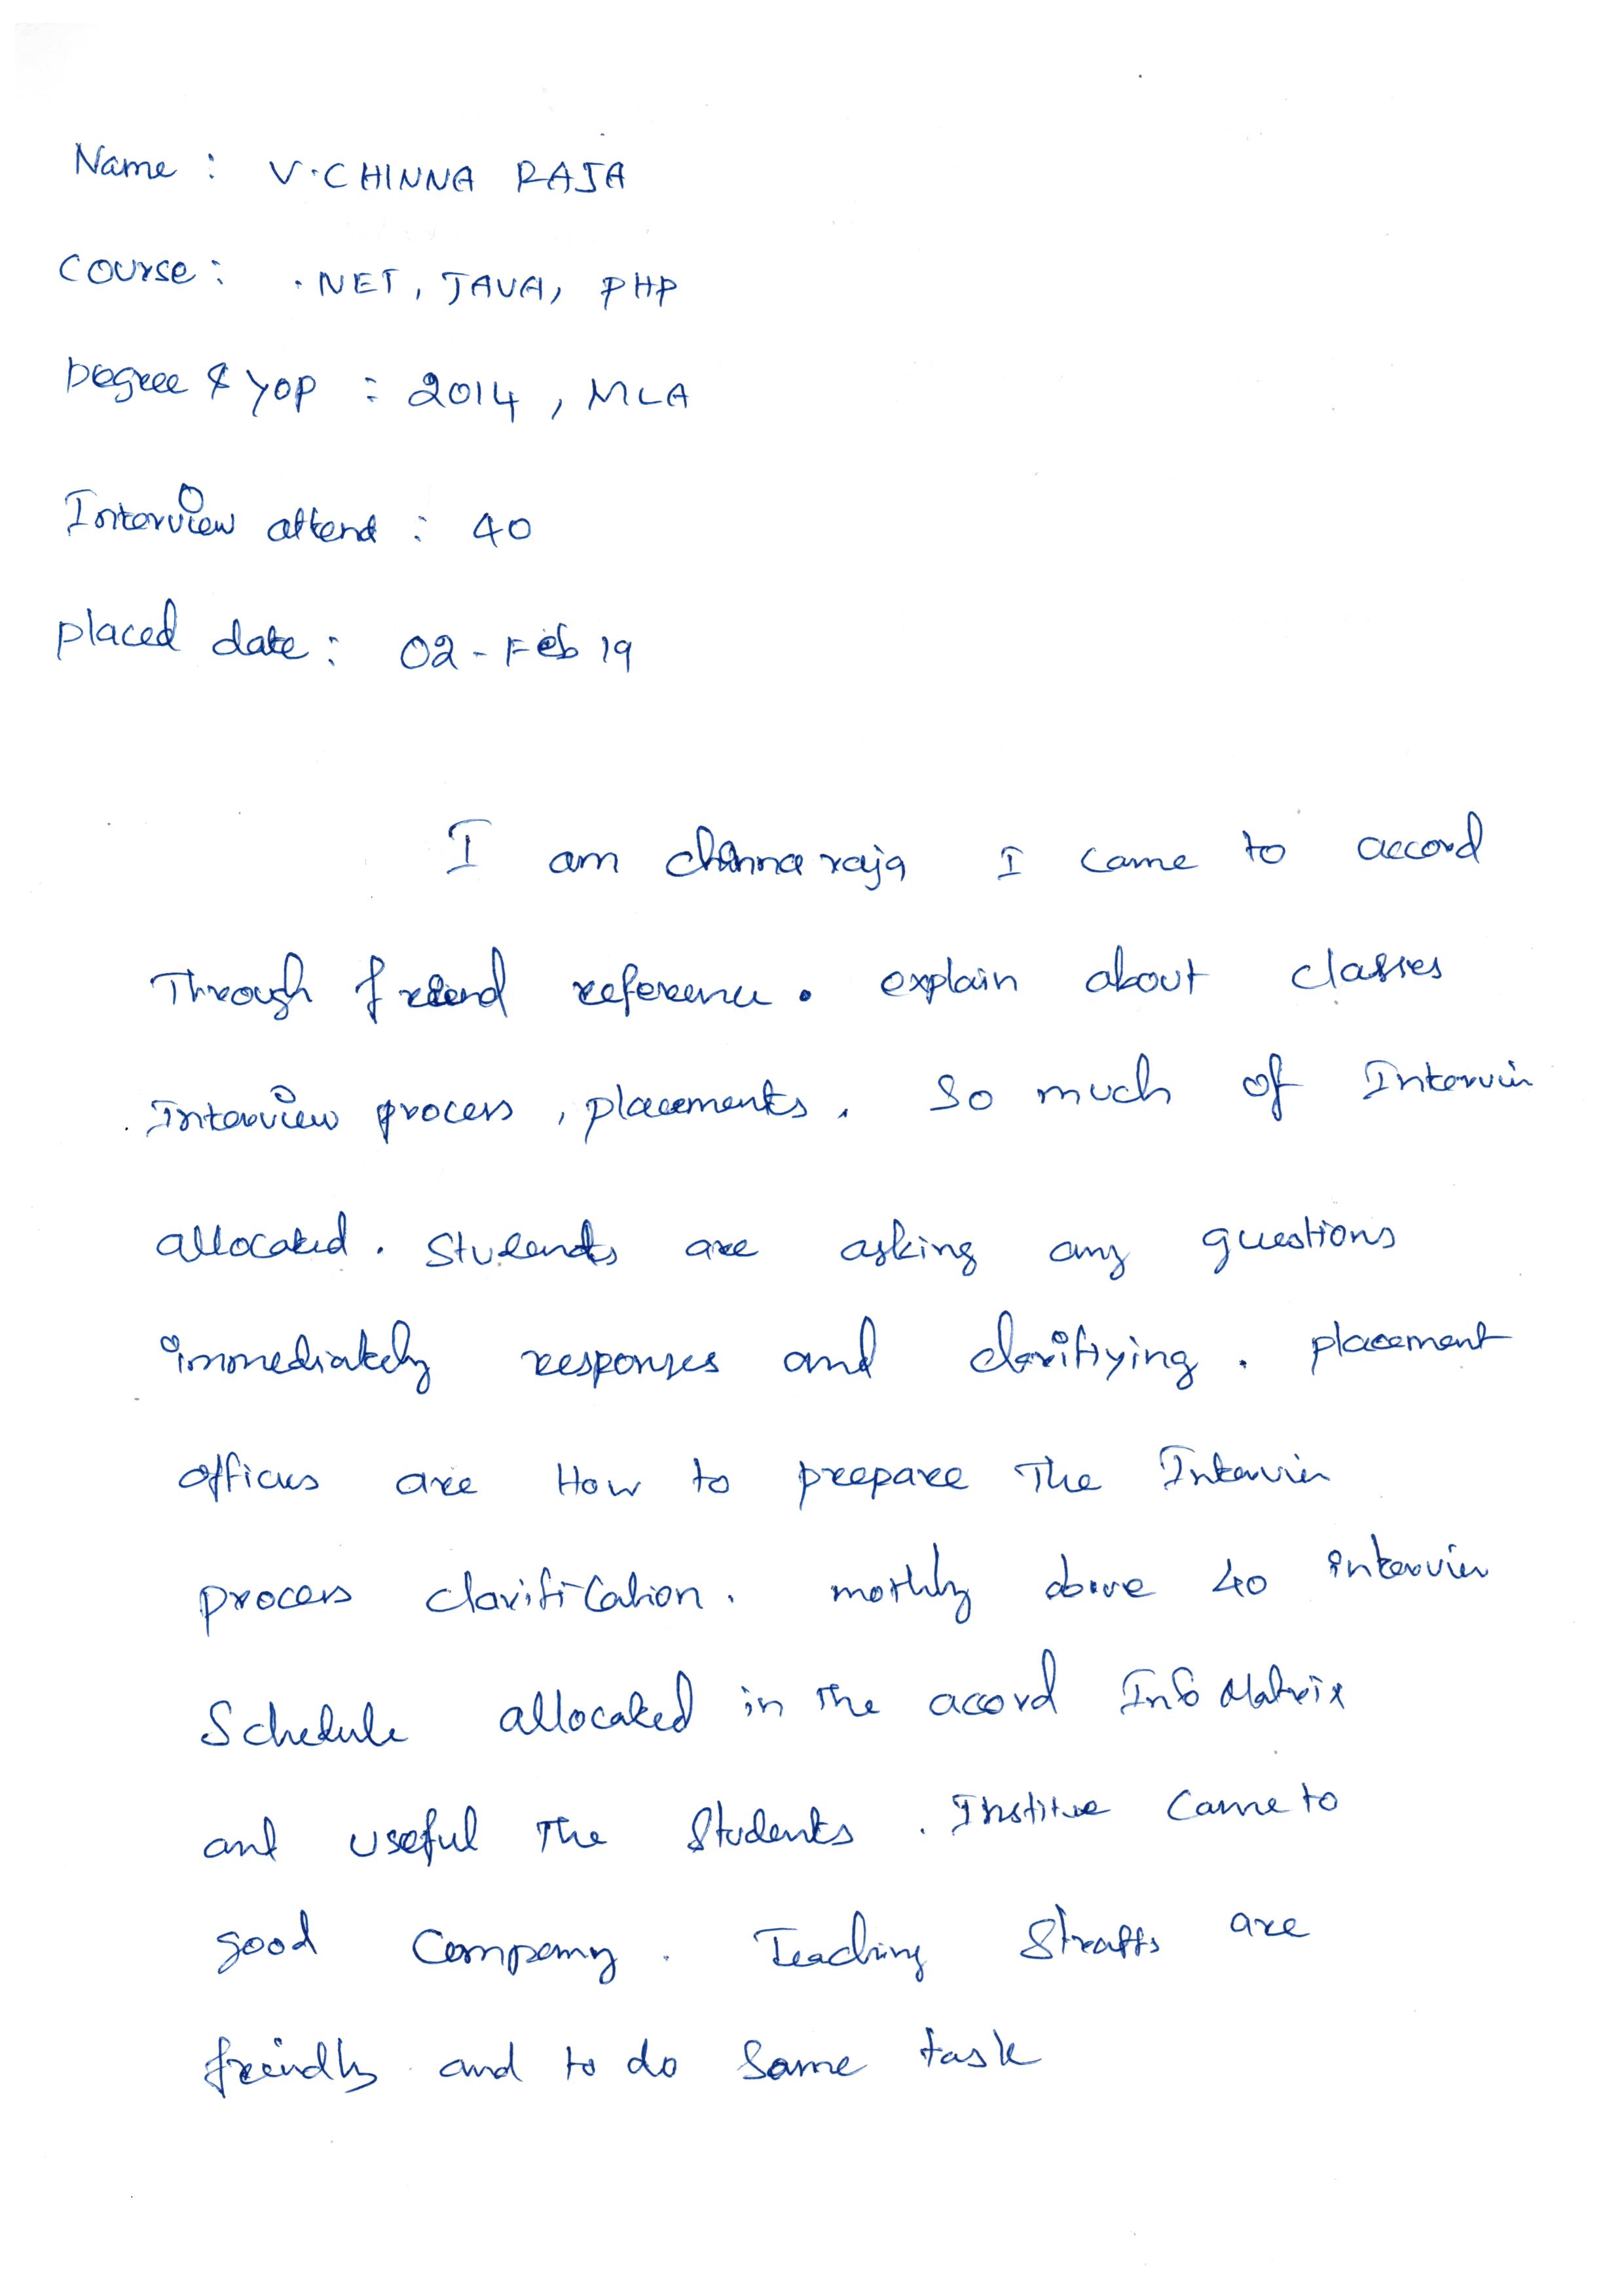 Name : V.CHINNA RAJA
Course : .NET, JAVA, PHP
Degree & YOP : 2014, MCA
Interview attend : 40
placed date : 02-Feb 19
I am chinna raja I came to accord
Through friend reference. explain about classes
Interview process, placements. So much of Intervin
allocated. Students are asking any questions
immediately responses and clarifiying. placement
officus are How to prepare The Intervin
process clarification. mothly above 40 intervin
Schedule allocated in The accord Info Matrix
and useful The Students. Institue Came to
good Company. Teaching Straffs are
freindly and to do Same task